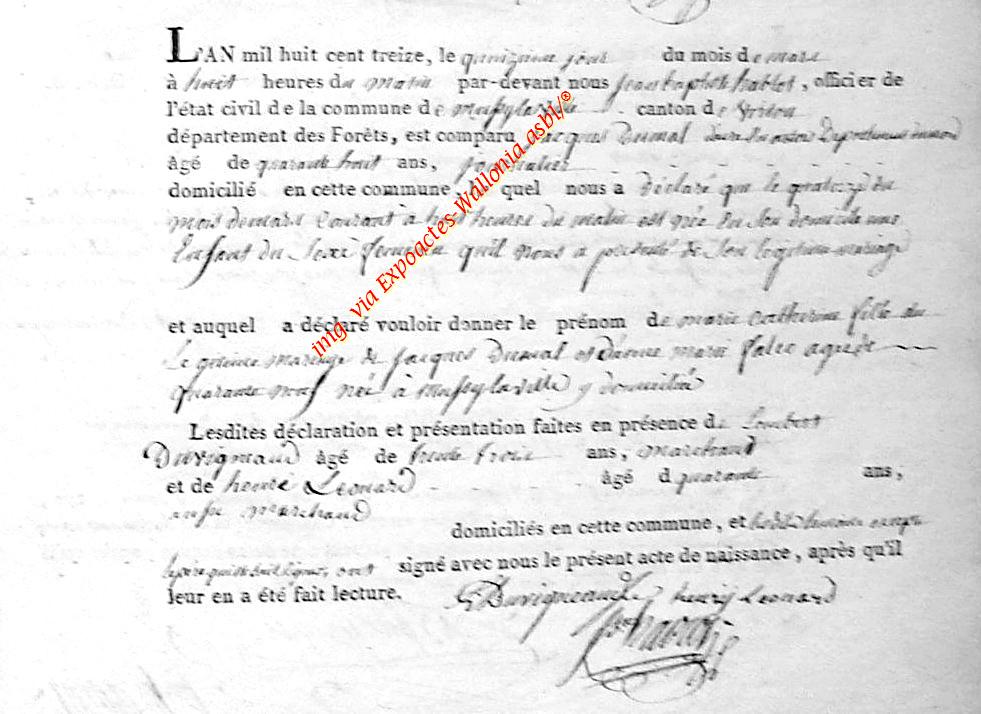 L'AN mil huit cent treize, le quinzieme jour du mois de mars
à huit heures du matin par-devant nous jean baptiste hablot, officier de
l'état civil de la commune de canton de Virton
département des Forêts, est comparu Jacques Dumal
âgé de quarante huit ans, journalier
domicilié en cette commune, le quel nous a Déclaré que le quatorze du
mois de mars Courant à huit heures du matin est née en son domicile une
Enfant du sexe feminin qu'il nous a presenté de son legitime mariage
et auquel a déclaré vouloir donner le prénom de marie Catherine fille du
Legitime mariage de Jacques Dumal et marie agée de
quarante neuf née à mussy la ville y domiciliée
Lesdites déclaration et présentation faites en présence de Lambert
Duvigneaud âgé de trente trois ans, marchand
et de henri Leonard âgé de quarante ans,
aussi marchand
domiciliés en cette commune, et temoins excepté
le pere ont signé avec nous le présent acte de naissance, après qu'il
leur en a été fait lecture. Duvigneaud henry Leonard
img. via Expoactes-Wallonia asbl/©